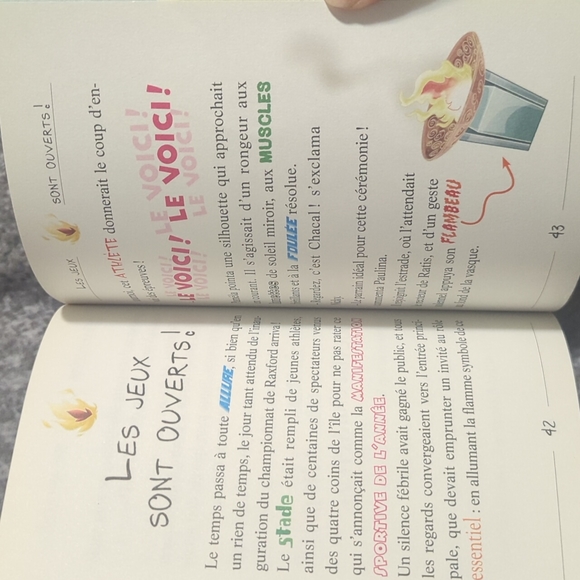 LES JEUX
SONT OUVERTS!
Le temps passa à toute ALLURE, si bien qu'en
un rien de temps, le jour tant attendu de l'inau-
guration du championnat de Raxford arriva!
Le stade était rempli de jeunes athlètes
ainsi que de centaines de spectateurs venus
des quatre coins de l'île pour ne pas rater ce
qui s'annonçait comme la MANIFESTATION
SPORTIVE DE L'ANNÉE.
Un silence fébrile avait gagné le public, et tous
les regards convergeaient vers l'entrée princi-
pale, que devait emprunter un invité au rôle
essentiel : en allumant la flamme symbole de ce
42
LES JEUX SONT OUVERTS!
cet ATHLÈTE donnerait le coup d'en-
les épreuves!
LE VOICI! LE VOICI!
LE VOICI! LE VOICI!
LE VOICI! LE VOICI!
pointa une silhouette qui approchait
en courant. Il s'agissait d'un rongeur aux
de soleil miroir, aux MUSCLES
et à la FOULÉE résolue.
Regardez, c'est Chacal! s'exclama
Le parrain idéal pour cette cérémonie!
commenta Paulina.
l'estrade, où l'attendait
de Ratis, et d'un geste
appuya son FLAMBEAU
de la vasque.
43